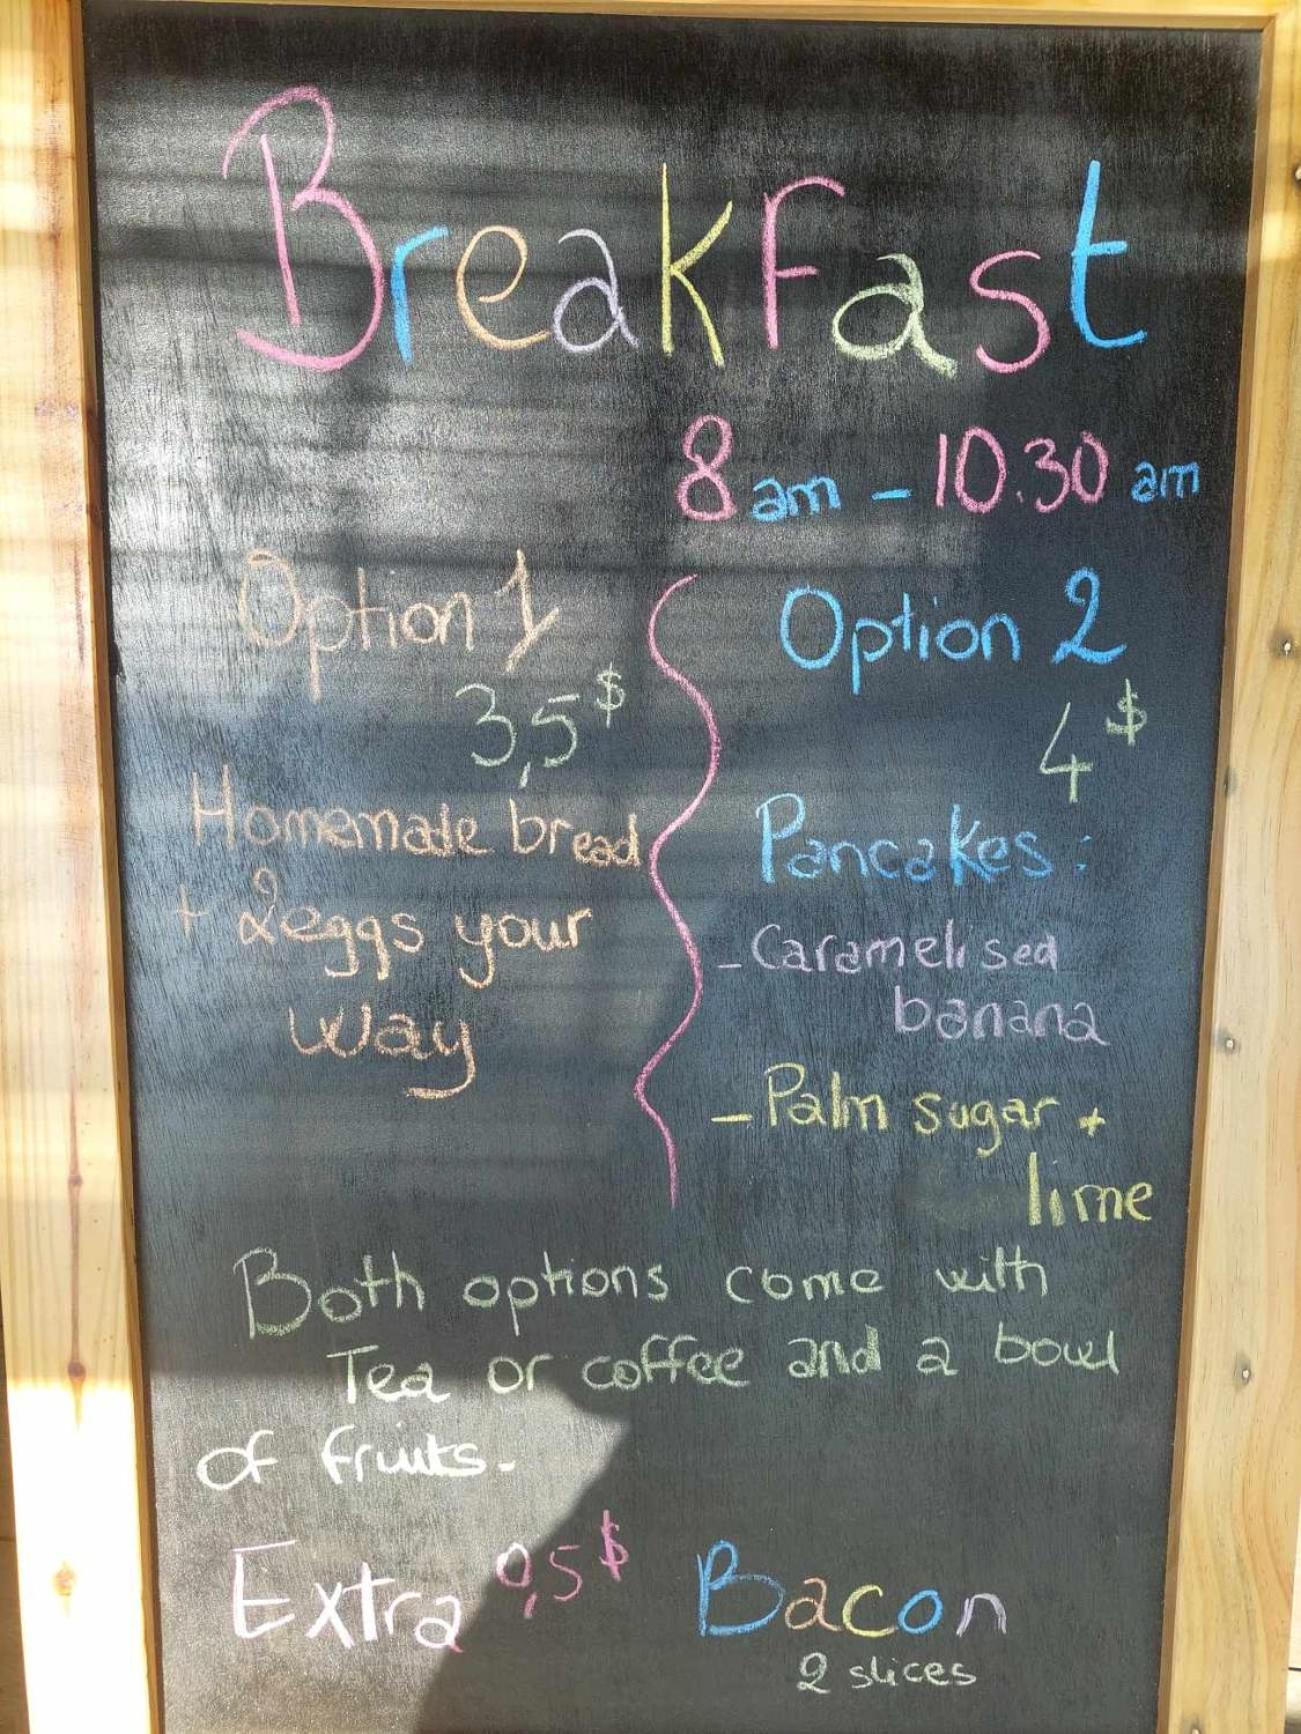 BreakFast
8 am - 10.30 am
Option 1
3,5$
Homemade bread
+ 2 eggs your
way
Option 2
4$
Pancakes :
- Caramelised
banana
- Palm sugar +
lime
Both options come with
Tea or coffee and a bowl
of fruits.
Extra 0,5$ Bacon
2 slices